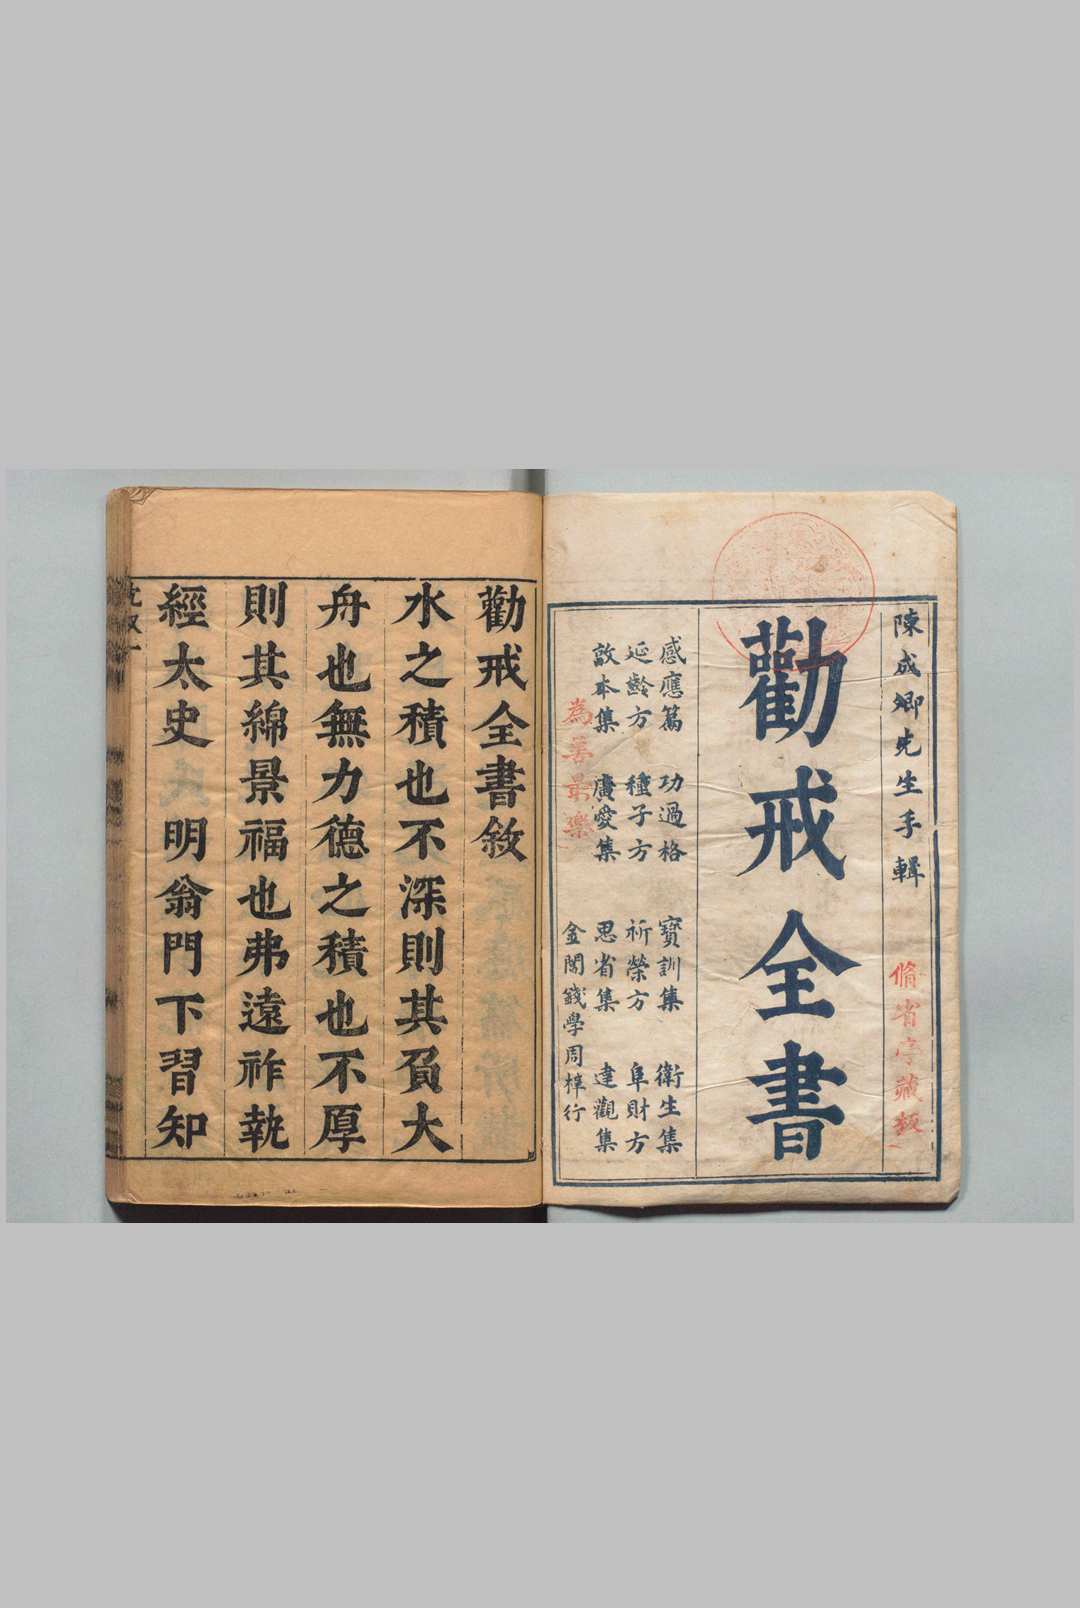 陳成卿先生手輯
脩省亭藏板
勸戒全書
感應篇 功過格 寶訓集 衛生集
延齡方 種子方 祈榮方 阜財方
敦本集 廣愛集 思省集 達觀集
為善最樂
金閶錢學周梓行
勸戒全書敘
水之積也不深則其負大
舟也無力德之積也不厚
則其綿景福也弗遠祚執
經太史明翁門下習知